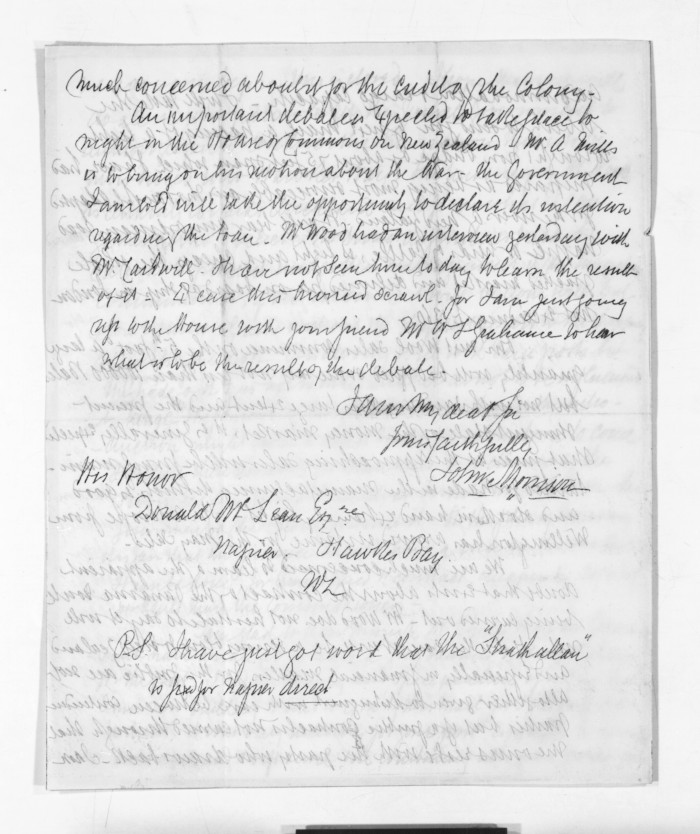 much concerned about it for the credit of the Colony.
An important debate is expected to take place to
night in the House of Commons on New Zealand Mr A Mills
is to bring on his motion about the War - the Government
I am told will take the opportunity to declare its intention
regarding the Loan. Mr Wood had an interview yesterday with
Mr Cardwell. I have not seen him to day to learn the result
of it - Excuse this hurried scrawl. for I am just going
up to the House with your friend Mr W S Grahame to hear
what is to be the result of the debate.
I am My dear Sir
yours faithfully
John Morrison
His Honor
Donald McLean Esqre
Napier. Hawkes Bay
NZ
P.S I have just got word that the "Strathallan"
is fixed for Napier direct